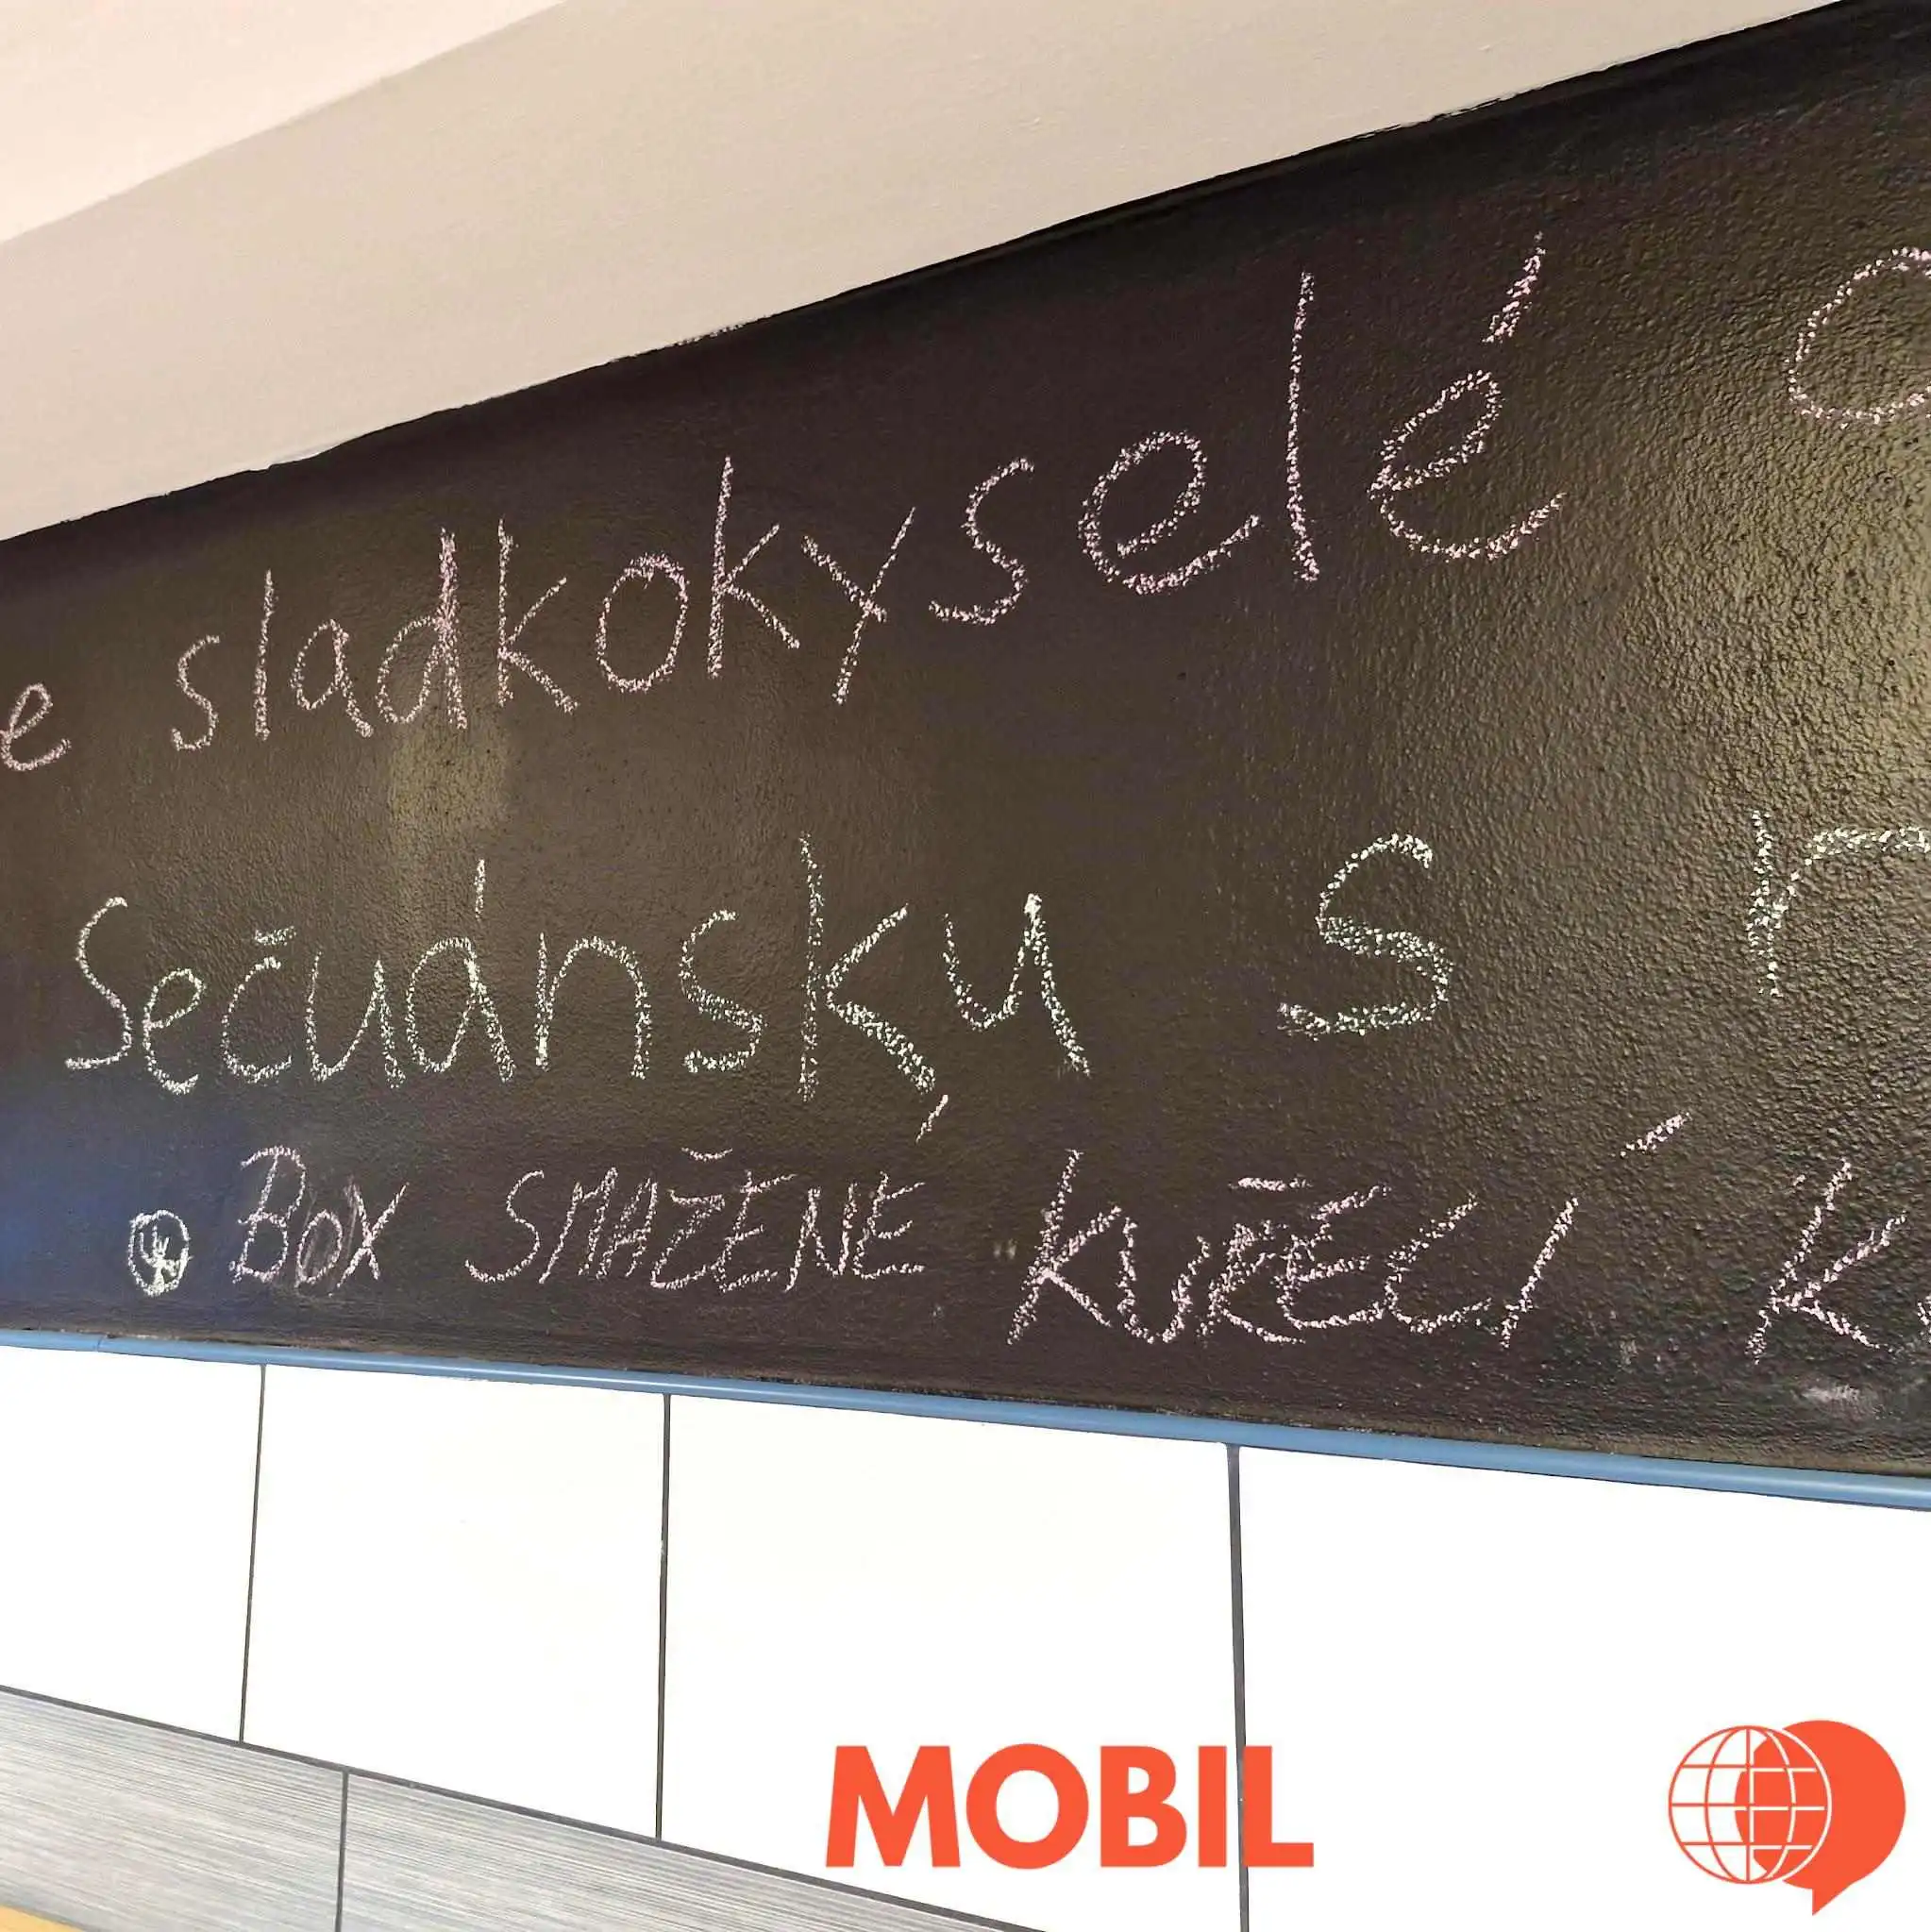 sladkokyselé
Sečuánsky s
BOX SMAŽENÉ KUŘECÍ
MOBIL